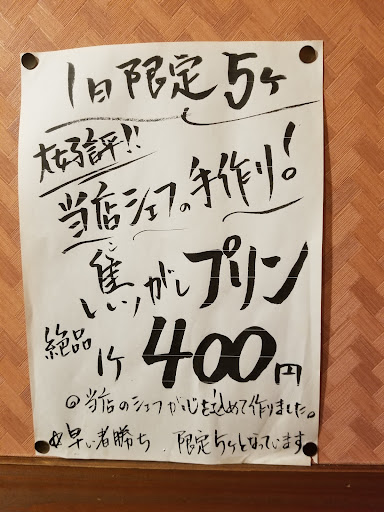 1日限定5ヶ
大好評!!
当店シェフの手作り!
焦がしプリン
絶品 1ヶ 400円
◎当店のシェフが心を込めて作りました。
☆早い者勝ち、限定5ヶとなっています